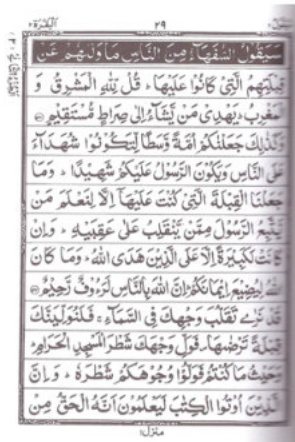 البقرة ٢ ٢٩ سيقول ٢
سَيَقُولُ السُّفَهَاءُ مِنَ النَّاسِ مَا وَلّٰىهُمْ عَنْ
قِبْلَتِهِمُ الَّتِي كَانُوا عَلَيْهَا ؕ قُلْ لِلّٰهِ الْمَشْرِقُ وَ
الْمَغْرِبُ يَهْدِي مَنْ يَّشَاءُ إِلٰى صِرَاطٍ مُّسْتَقِيْمٍ
وَكَذٰلِكَ جَعَلْنٰكُمْ اُمَّةً وَّسَطًا لِّتَكُوْنُوْا شُهَدَآءَ
عَلَى النَّاسِ وَيَكُوْنَ الرَّسُوْلُ عَلَيْكُمْ شَهِيْدًا ؕ وَمَا
جَعَلْنَا الْقِبْلَةَ الَّتِيْ كُنْتَ عَلَيْهَآ اِلَّا لِنَعْلَمَ مَنْ
يَّتَّبِعُ الرَّسُوْلَ مِمَّنْ يَّنْقَلِبُ عَلٰى عَقِبَيْهِ ؕ وَاِنْ
كَانَتْ لَكَبِيْرَةً اِلَّا عَلَى الَّذِيْنَ هَدَى اللّٰهُ ؕ وَمَا كَانَ
اللّٰهُ لِيُضِيْعَ اِيْمَانَكُمْ ؕ اِنَّ اللّٰهَ بِالنَّاسِ لَرَءُوْفٌ رَّحِيْمٌ
قَدْ نَرٰى تَقَلُّبَ وَجْهِكَ فِي السَّمَآءِ ۚ فَلَنُوَلِّيَنَّكَ
قِبْلَةً تَرْضٰىهَا ۪ فَوَلِّ وَجْهَكَ شَطْرَ الْمَسْجِدِ الْحَرَامِ ؕ
وَحَيْثُ مَا كُنْتُمْ فَوَلُّوْا وُجُوْهَكُمْ شَطْرَهٗ ؕ وَاِنَّ
الَّذِيْنَ اُوْتُوا الْكِتٰبَ لَيَعْلَمُوْنَ اَنَّهُ الْحَقُّ مِنْ
منزل ۱